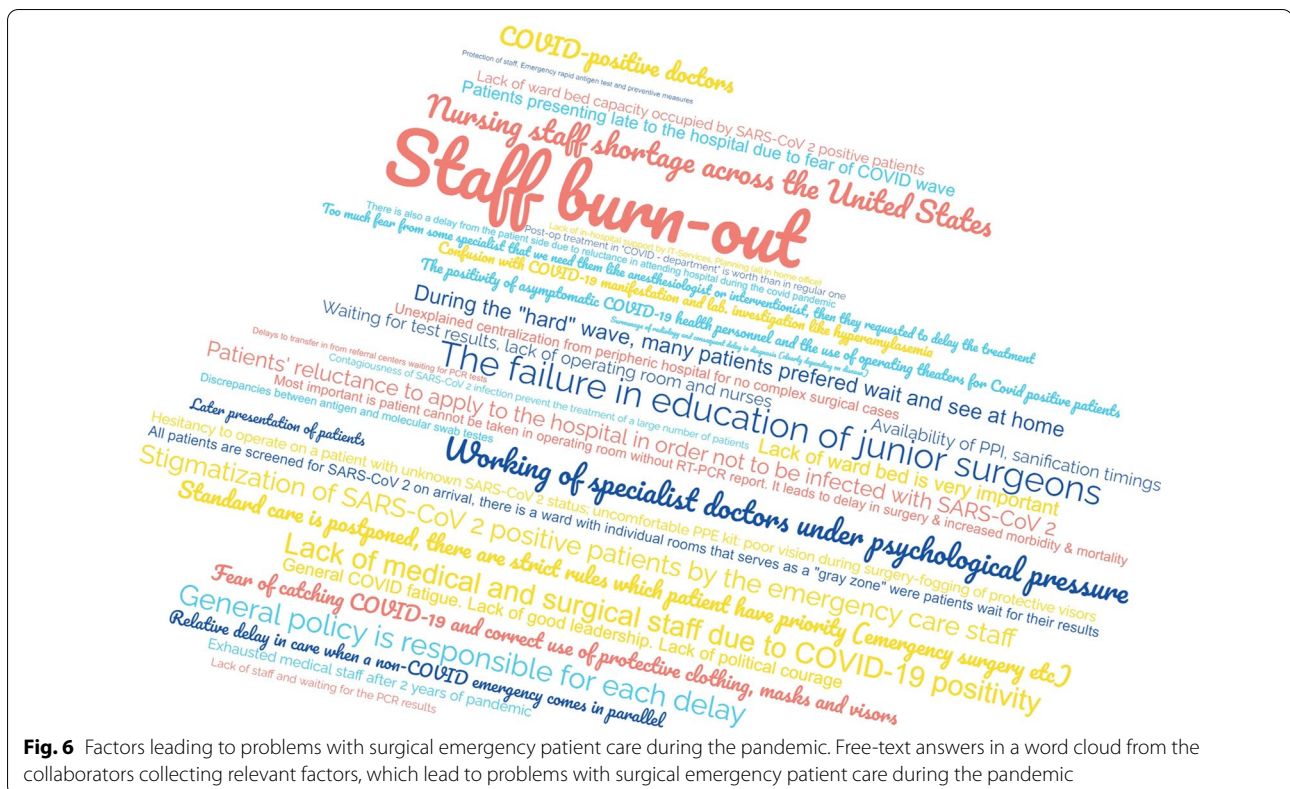 COVID-positive doctors
Protection of staff, Emergency rapid antigen test and preventive measures
Lack of ward bed capacity occupied by SARS-CoV 2 positive patients
Patients presenting late to the hospital due to fear of COVID wave
Nursing staff shortage across the United States
Staff burn-out
Lack of in-hospital support by IT-Services. Planning (all in home office)
Post-op treatment in "COVID - department" is worth than in regular one
There is also a delay from the patient side due to reluctance in attending hospital during the covid pandemic
Too much fear from some specialist that we need them like anesthesiologist or interventionist, then they requested to delay the treatment
Confusion with COVID-19 manifestation and lab. investigation like hyperamylasemia
The positivity of asymptomatic COVID-19 health personnel and the use of operating theaters for Covid positive patients
Surmenage of radiology and consequent delay in diagnosis (clearly depending on disease)
During the "hard" wave, many patients prefered wait and see at home
Unexplained centralization from peripheric hospital for no complex surgical cases
Waiting for test results, lack of operating room and nurses
The failure in education of junior surgeons
Availability of PPI, sanification timings
Delays to transfer in from referral centers waiting for PCR tests
Contagiousness of SARS-CoV 2 infection prevent the treatment of a large number of patients
Patients' reluctance to apply to the hospital in order not to be infected with SARS-CoV 2
Lack of ward bed is very important
Most important is patient cannot be taken in operating room without RT-PCR report. It leads to delay in surgery & increased morbidity & mortality
Discrepancies between antigen and molecular swab testes
Working of specialist doctors under psychological pressure
Later presentation of patients
Hesitancy to operate on a patient with unknown SARS-CoV 2 status; uncomfortable PPE kit: poor vision during surgery-fogging of protective visors
All patients are screened for SARS-CoV 2 on arrival, there is a ward with individual rooms that serves as a "gray zone" were patients wait for their results
Stigmatization of SARS-CoV 2 positive patients by the emergency care staff
Standard care is postponed, there are strict rules which patient have priority (emergency surgery etc.)
Lack of medical and surgical staff due to COVID-19 positivity
General COVID fatigue. Lack of good leadership. Lack of political courage
Fear of catching COVID-19 and correct use of protective clothing, masks and visors
General policy is responsible for each delay
Relative delay in care when a non-COVID emergency comes in parallel
Exhausted medical staff after 2 years of pandemic
Lack of staff and waiting for the PCR results
Fig. 6 Factors leading to problems with surgical emergency patient care during the pandemic. Free-text answers in a word cloud from the
collaborators collecting relevant factors, which lead to problems with surgical emergency patient care during the pandemic